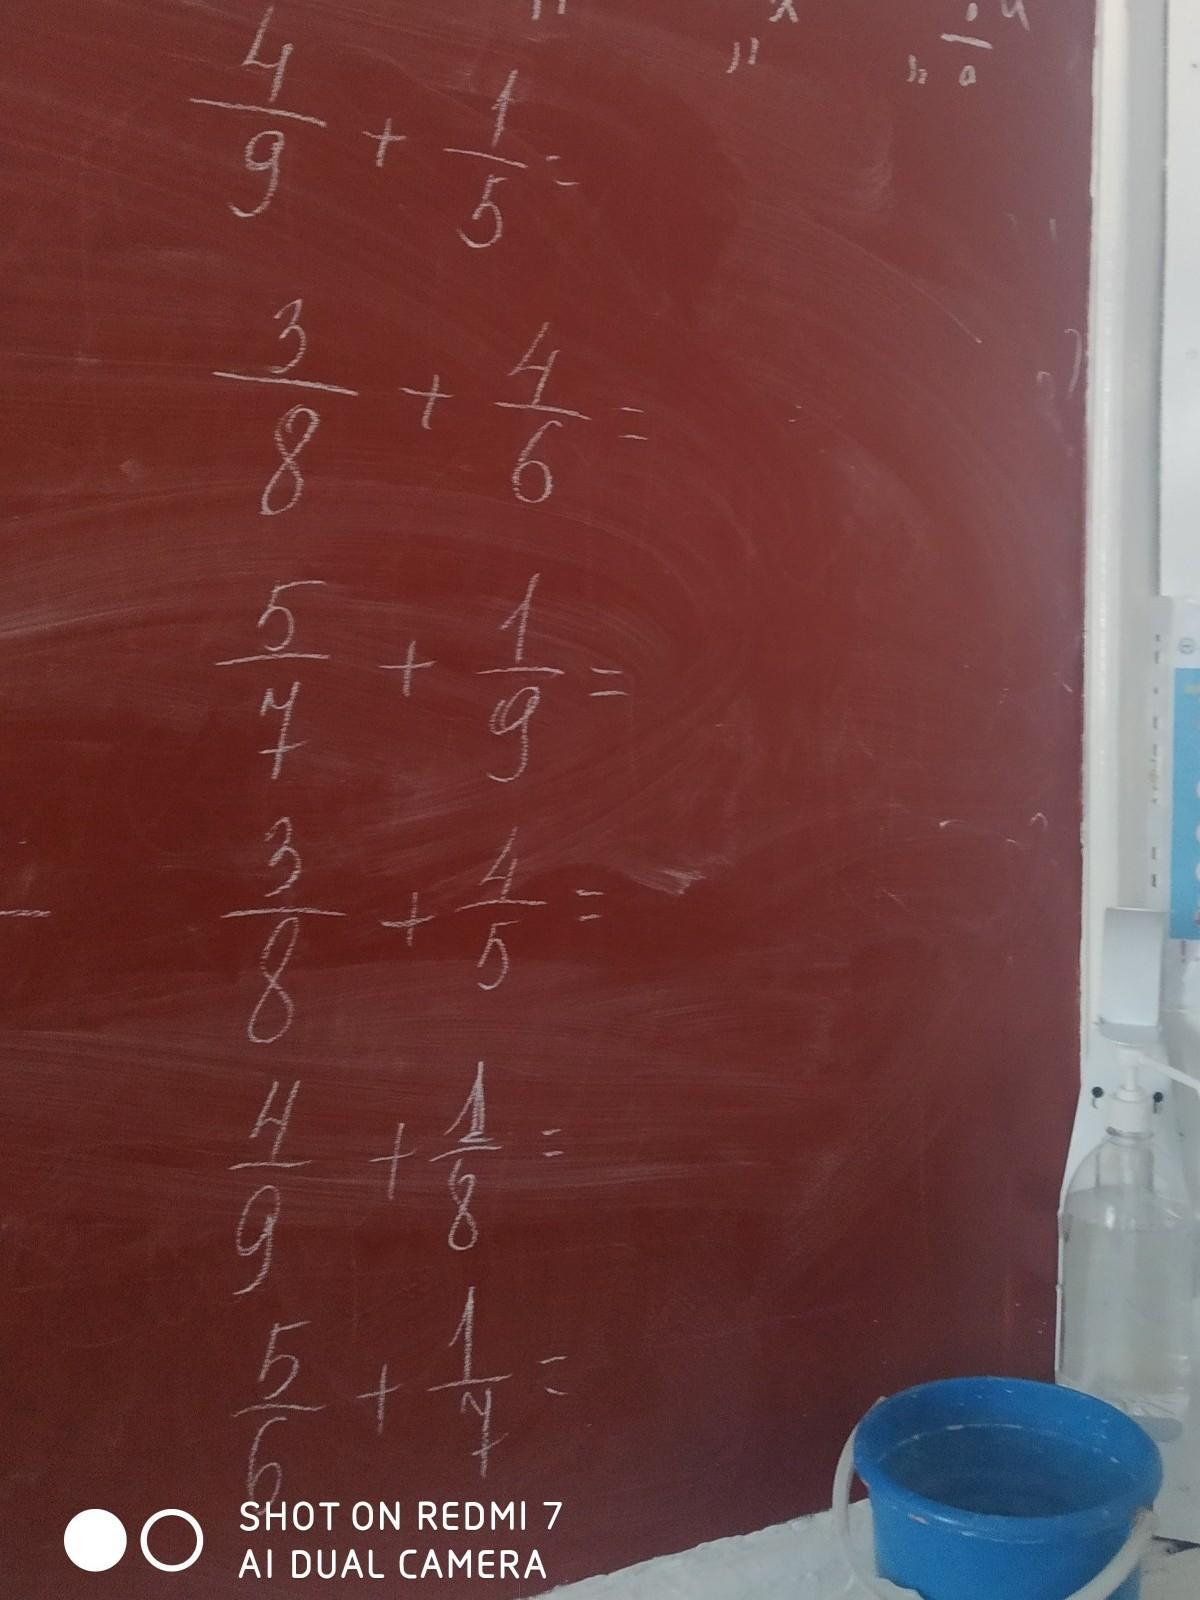 4/9 + 1/5 =
3/8 + 4/6 =
5/7 + 1/9 =
3/8 + 4/5 =
4/9 + 1/8 =
5/6 + 1/7 =
SHOT ON REDMI 7
AI DUAL CAMERA